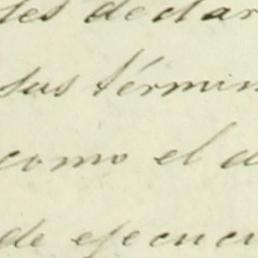 les declar
sus términ
como el d
de ejecuci